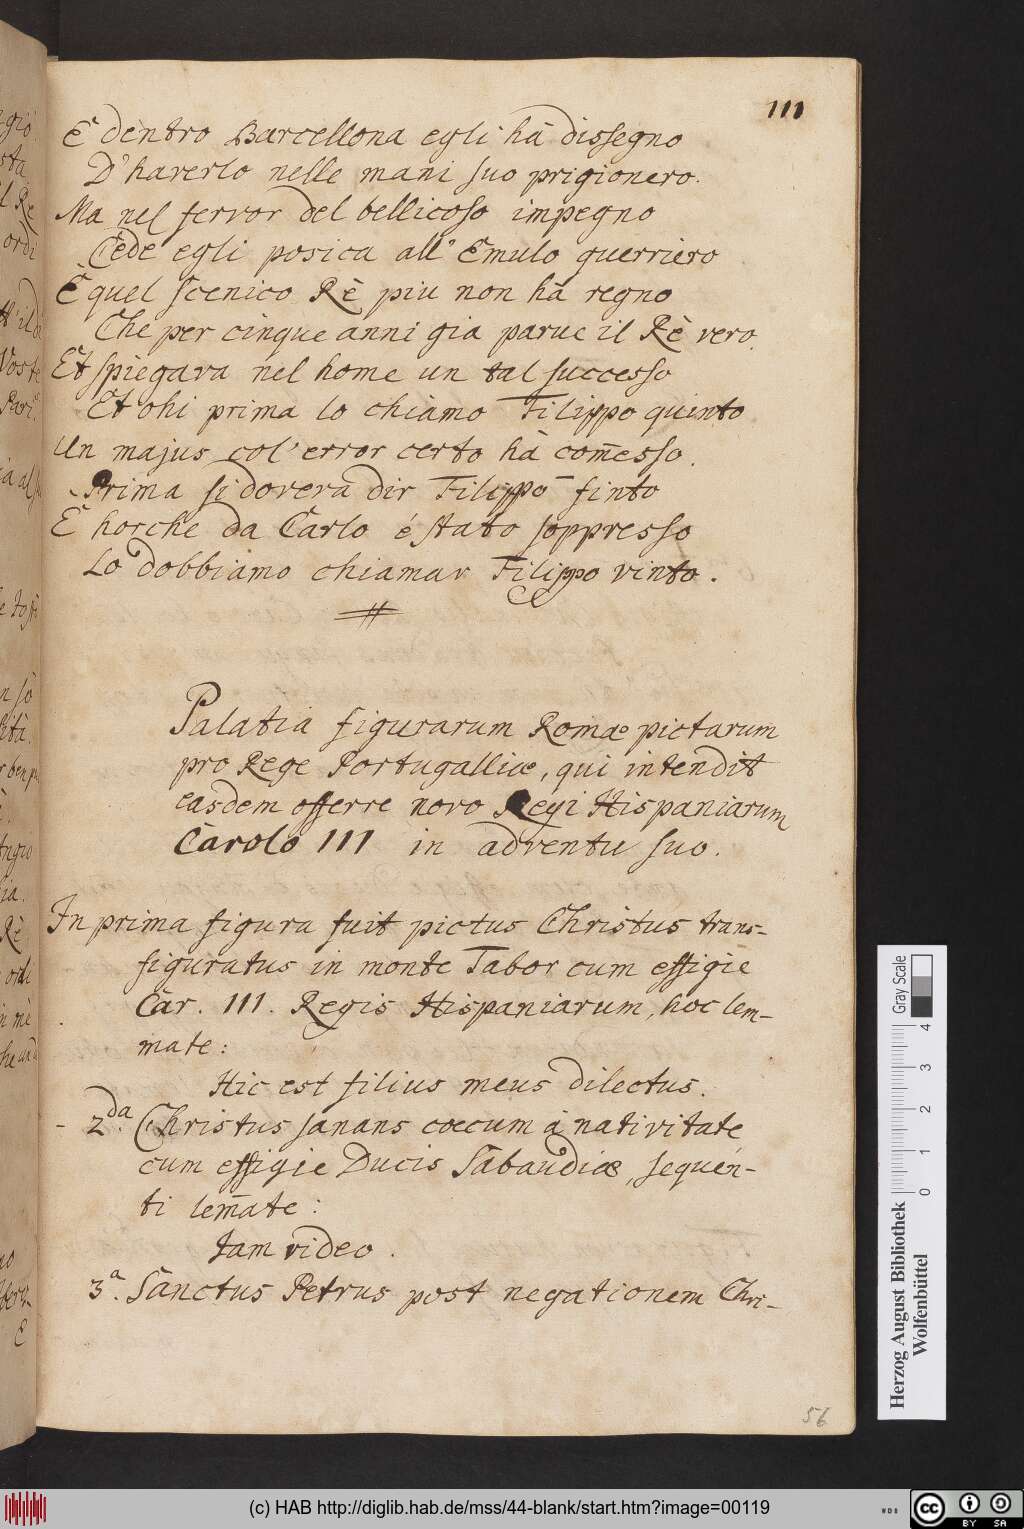 111
E dentro Barcellona egli hà dissegno
D'haverlo nelle mani suo prigionero.
Ma nel fervor del bellicoso impegno
Cede egli posica all' Emulo guerriero
E quel scenico Rè piu non hà regno
Che per cinque anni gia parve il Rè vero.
Et spiegava nel home un tal successo
Et chi prima lo chiamo Filippo quinto
Un majus col' error certo hà com̄esso.
Prima si dovera dir Filippo finto
E horche da Carlo é stato soppresso
Lo dobbiamo chiamar Filippo vinto.
Palatia figurarum Romae pictarum
pro Rege Portugalliæ, qui intendit
easdem offerre novo Regi Hispaniarum
Carolo III in adventu suo.
In prima figura fuit pictus Christus trans-
figuratus in monte Tabor cum effigie
Car. III. Regis Hispaniarum, hoc lem-
mate:
Hic est filius meus dilectus.
- 2da. Christus sanans cœcum à nativitate
cum effigie Ducis Sabaudiæ, sequen-
ti lem̄ate:
Jam video.
3a. Sanctus Petrus post negationem Chri-
56
Herzog August Bibliothek
Wolfenbüttel
0 1 2 3 4
Gray Scale
(c) HAB http://diglib.hab.de/mss/44-blank/start.htm?image=00119
cc BY SA